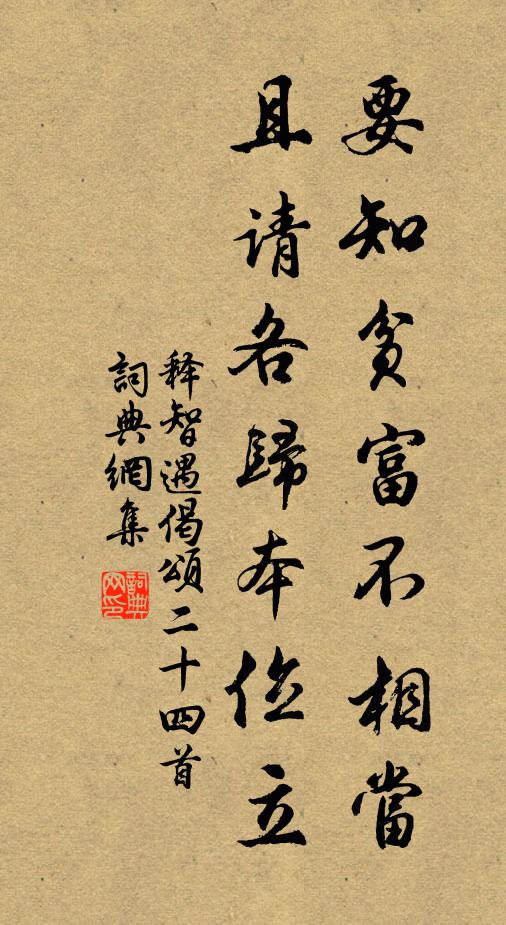 要知貧富不相當
且请各歸本位立
释智遇偈頌二十四首
詞典網集
詞典网印